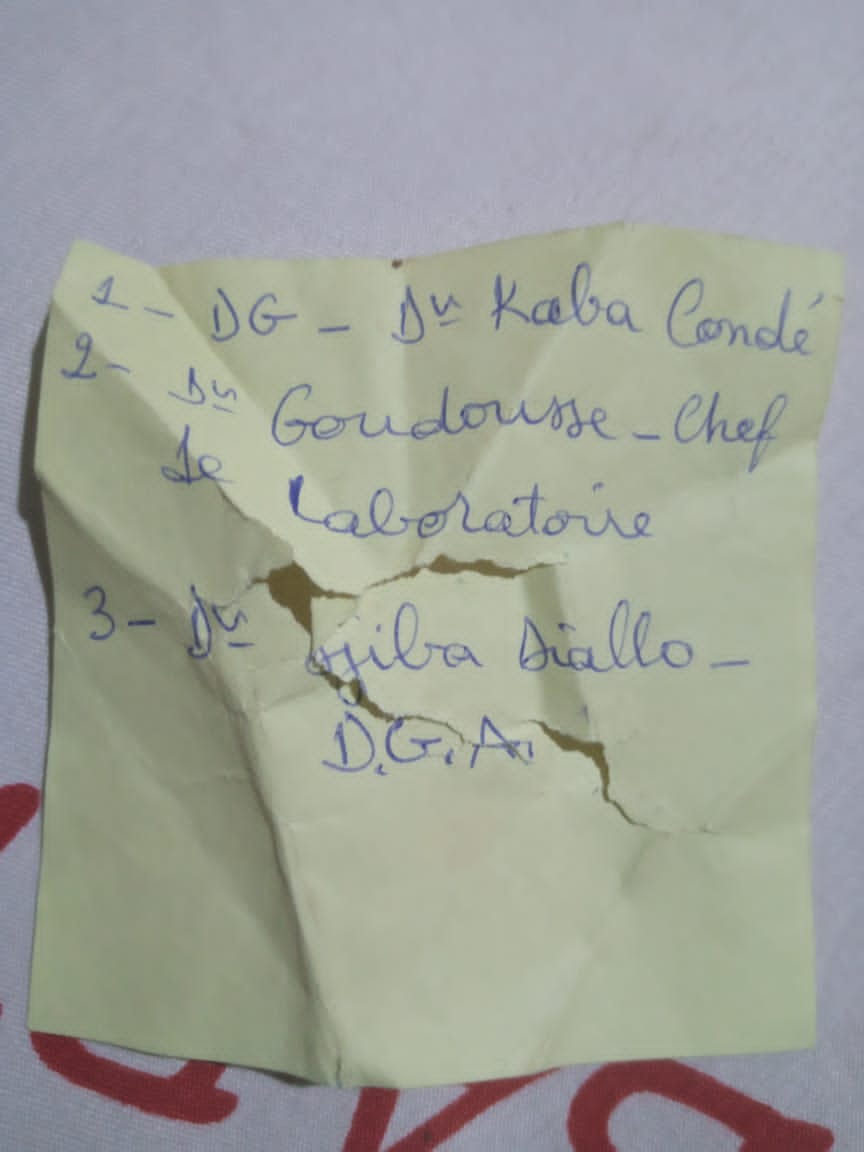 1 - DG - Dr Kaba Condé
2 - Dr Goudousse - Chef
de
Laboratoire
3 - Dr Djiba Diallo -
D.G.A.